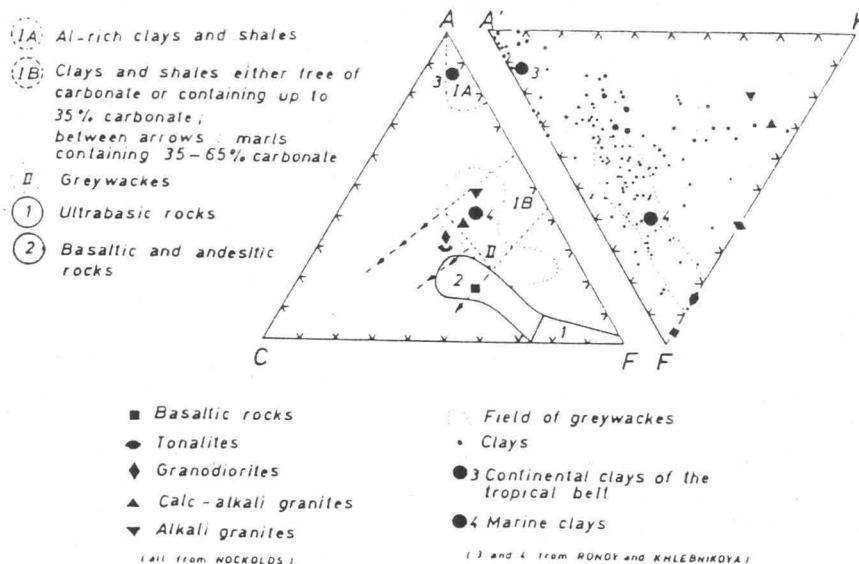 IA Al-rich clays and shales
IB Clays and shales either free of
carbonate or containing up to
35% carbonate;
between arrows : marls
containing 35-65% carbonate
II Greywackes
1 Ultrabasic rocks
2 Basaltic and andesitic
rocks
A
A'
K
3
IA
3
IB
4
4
II
2
1
C
F
F
Basaltic rocks
Tonalites
Granodiorites
Calc-alkali granites
Alkali granites
(all from NOCKOLDS)
Field of greywackes
Clays
3 Continental clays of the
tropical belt
4 Marine clays
(3 and 4 from RONOV and KHLEBNIKOVA)